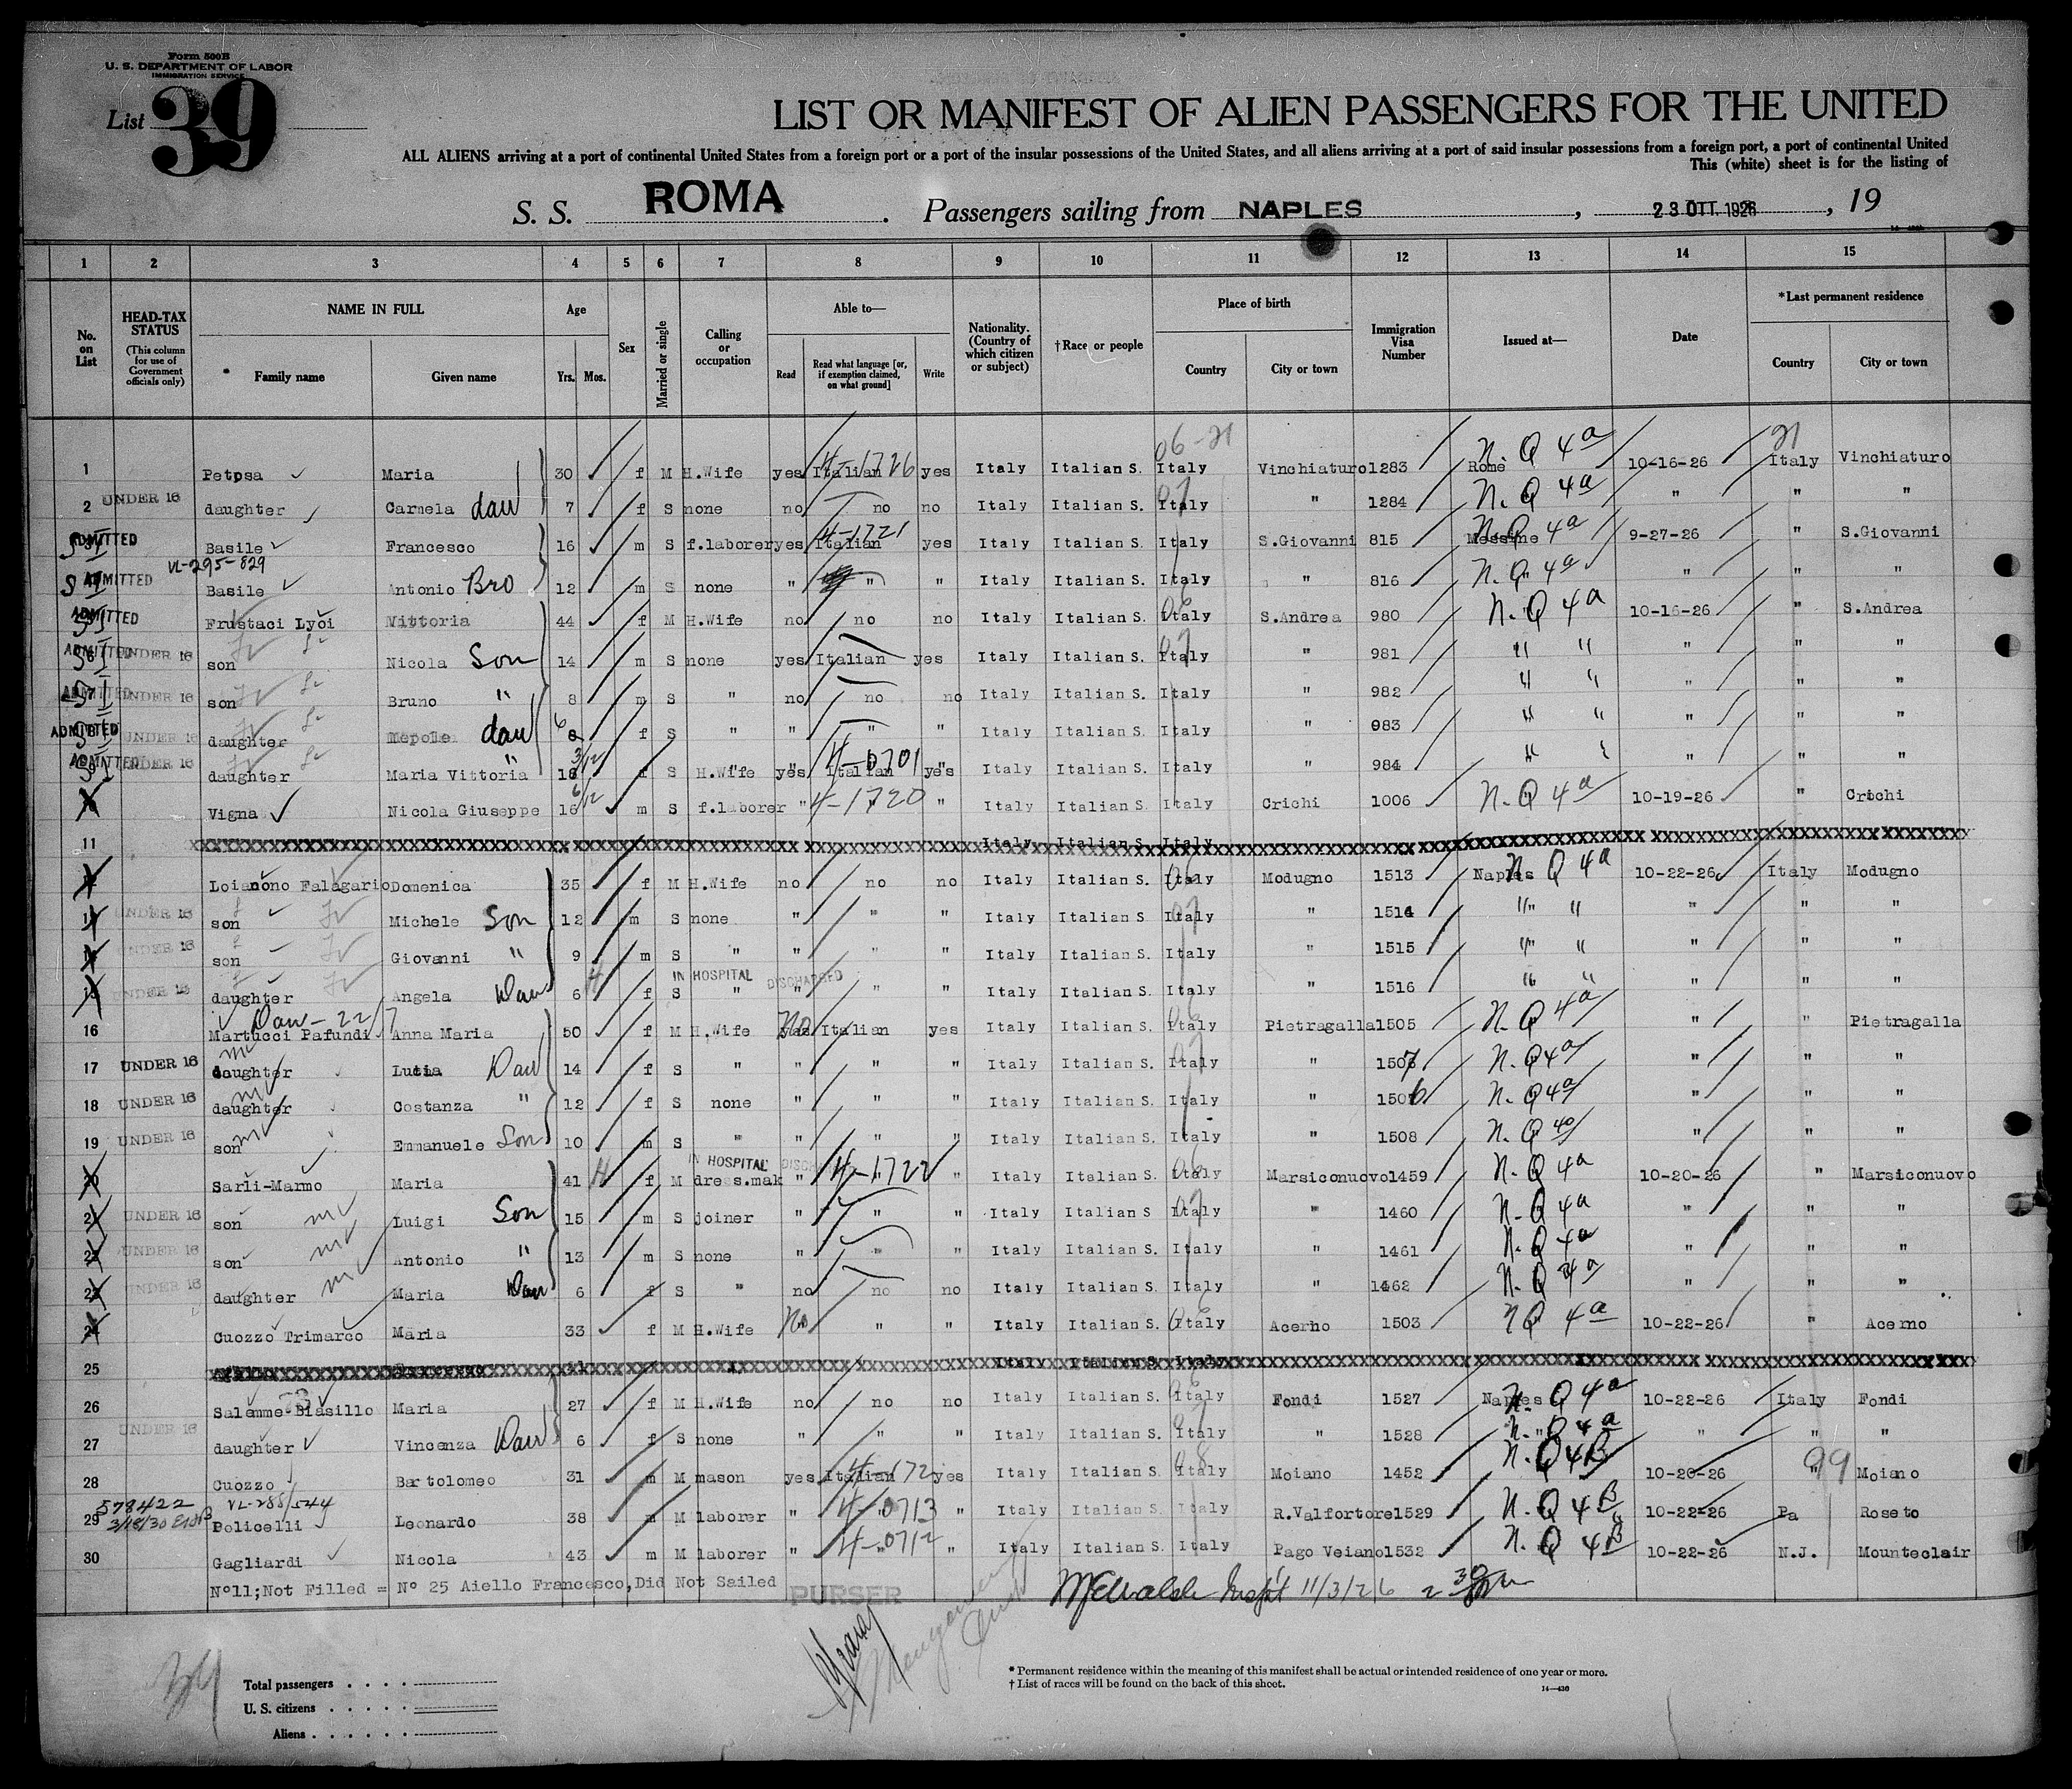 Form 500B
U. S. DEPARTMENT OF LABOR
IMMIGRATION SERVICE
List 39
LIST OR MANIFEST OF ALIEN PASSENGERS FOR THE UNITED
ALL ALIENS arriving at a port of continental United States from a foreign port or a port of the insular possessions of the United States, and all aliens arriving at a port of said insular possessions from a foreign port, a port of continental United
This (white) sheet is for the listing of
S. S. ROMA . Passengers sailing from NAPLES , 23 OTT. 1926 , 19
1 2 3 4 5 6 7 8 9 10 11 12 13 14 15
No. on List
HEAD-TAX STATUS (This column for use of Government officials only)
NAME IN FULL Family name Given name
Age Yrs. Mos.
Sex
Married or single
Calling or occupation
Able to— Read Read what language [or, if exemption claimed, on what ground] Write
Nationality. (Country of which citizen or subject)
†Race or people
Place of birth Country City or town
Immigration Visa Number
Issued at—
Date
*Last permanent residence Country City or town
06-21 21
1 Petosa Maria 30 f M H.Wife yes Italian 4-1726 yes Italy Italian S. Italy Vinchiaturo 1283 Rome N.Q 4a 10-16-26 Italy Vinchiaturo
2 UNDER 16 daughter Carmela dau 7 f S none no no no Italy Italian S. Italy " 1284 N.Q 4a " " "
ADMITTED Basile Francesco 16 m S f.laborer yes Italian 4-1721 yes Italy Italian S. Italy S.Giovanni 815 Messine N.Q 4a 9-27-26 " S.Giovanni
VL-295-829
ADMITTED Basile Antonio Bro 12 m S none " " " Italy Italian S. Italy " 816 N.Q 4a " " "
ADMITTED Frustaci Lyoi Vittoria 44 f M H.Wife no no no Italy Italian S. Italy S.Andrea 980 N.Q 4a 10-16-26 " S.Andrea
ADMITTED UNDER 16 son Nicola Son 14 m S none yes Italian yes Italy Italian S. Italy " 981 " " " " "
ADMITTED UNDER 16 son Bruno " 8 m S " no no no Italy Italian S. Italy " 982 " " " " "
ADMITTED UNDER 16 daughter dau 6 f S " " " " Italy Italian S. Italy " 983 " " " " "
ADMITTED UNDER 16 daughter Maria Vittoria " 16 3/12 f S H.Wife yes Italian 4-0701 yes Italy Italian S. Italy " 984 " " " " "
Vigna Nicola Giuseppe 16 6/12 m S f.laborer " 4-1720 " Italy Italian S. Italy Crichi 1006 N.Q 4a 10-19-26 " Crichi
11 Italy Italian S. Italy
Loianono Falagario Domenica 35 f M H.Wife no no no Italy Italian S. Italy Modugno 1513 Naples N.Q 4a 10-22-26 Italy Modugno
UNDER 16 son Michele Son 12 m S none " " " Italy Italian S Italy " 1514 " " " " "
UNDER 16 son Giovanni " 9 m S " " " " Italy Italian S. Italy " 1515 " " " " "
IN HOSPITAL DISCHARGED
UNDER 16 daughter Angela Dau 6 f S " " " " Italy Italian S. Italy " 1516 " " " " "
Dau - 22/7
16 Martucci Pafundi Anna Maria 50 f M H.Wife no Italian yes Italy Italian S. Italy Pietragalla 1505 N.Q 4a " " Pietragalla
17 UNDER 16 daughter Lucia Dau 14 f S " " " " Italy Italian S. Italy " 1507 N.Q 4a " " "
18 UNDER 16 daughter Costanza " 12 f S none " " " Italy Italian S. Italy " 1506 N.Q 4a " " "
19 UNDER 16 son Emmanuele Son 10 m S " " " " Italy Italian S. Italy " 1508 N.Q 4a " " "
IN HOSPITAL
20 Sarli-Marmo Maria 41 H f M dres.mak " 4-1722 " Italy Italian S. Italy Marsiconuovo 1459 N.Q 4a 10-20-26 " Marsiconuovo
21 UNDER 16 son Luigi Son 15 m S joiner " " " Italy Italian S Italy " 1460 N.Q 4a " " "
22 UNDER 16 son Antonio " 13 m S none " " " Italy Italian S. Italy " 1461 N.Q 4a " " "
23 UNDER 16 daughter Maria Dau 6 f S " no no no Italy Italian S. Italy " 1462 N.Q 4a " " "
24 Cuozzo Trimarco Maria 33 f M H.Wife no " " Italy Italian S. Italy Acerno 1503 NQ 4a 10-22-26 " Acerno
25 Italy Italian S. Italy
26 Salemme-Biasillo Maria 27 f M H.Wife no no no Italy Italian S. Italy Fondi 1527 Naples N.Q 4a 10-22-26 Italy Fondi
27 UNDER 16 daughter Vincenza Dau 6 f S none " " " Italy Italian S. Italy " 1528 N.Q 4a " " "
28 Cuozzo Bartolomeo 31 m M mason yes Italian yes Italy Italian S. Italy Moiano 1452 N.Q 4B 10-20-26 " 99 Moiano
578422 VL-288/544
29 3/18/30 Policelli Leonardo 38 m M laborer " 4-0713 " Italy Italian S. Italy R.Valfortore 1529 N.Q 4B 10-22-26 Pa Roseto
30 Gagliardi Nicola 43 m M laborer " 4-0712 " Italy Italian S. Italy Pago Veiano 1532 N.Q 4B 10-22-26 N.J. Mounteclair
N°11;Not Filled = N° 25 Aiello Francesco,Did Not Sailed PURSER
McWalsh Inspt 11/3/26 2 30 pm
Total passengers
U. S. citizens
Aliens
* Permanent residence within the meaning of this manifest shall be actual or intended residence of one year or more.
† List of races will be found on the back of this sheet.
14—430